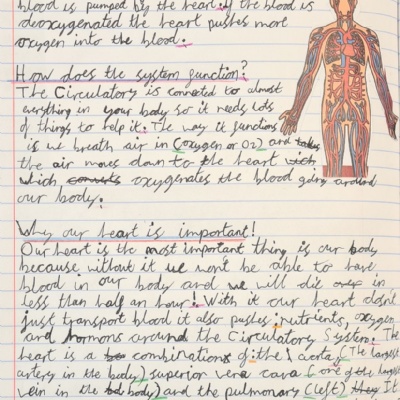 blood is pumped by the heart. If the blood is
deoxygenated the heart pushes more
oxygen into the blood.
How does the system function?
The Circulatory is connected to almost
everything in your body so it needs lots
of things to help it. The way it functions
is we breath air in (oxygen or O2) and takes
the air moves down to the heart wich
which converts oxygenates the blood going around
our body.
Why our heart is important!
Our heart is the most important thing is our body
because without it we won't be able to have
blood in our body and we will die over in
less than half an hour! With it our heart dosn't
just transport blood it also pushes nutrients, oxygen
and hormons around the Circulatory System. The
heart is a combinations of the aorta, (The largest
artery in the body) superior vera cava (one of the largest
vein in the body) and the pulmonary (left) they It